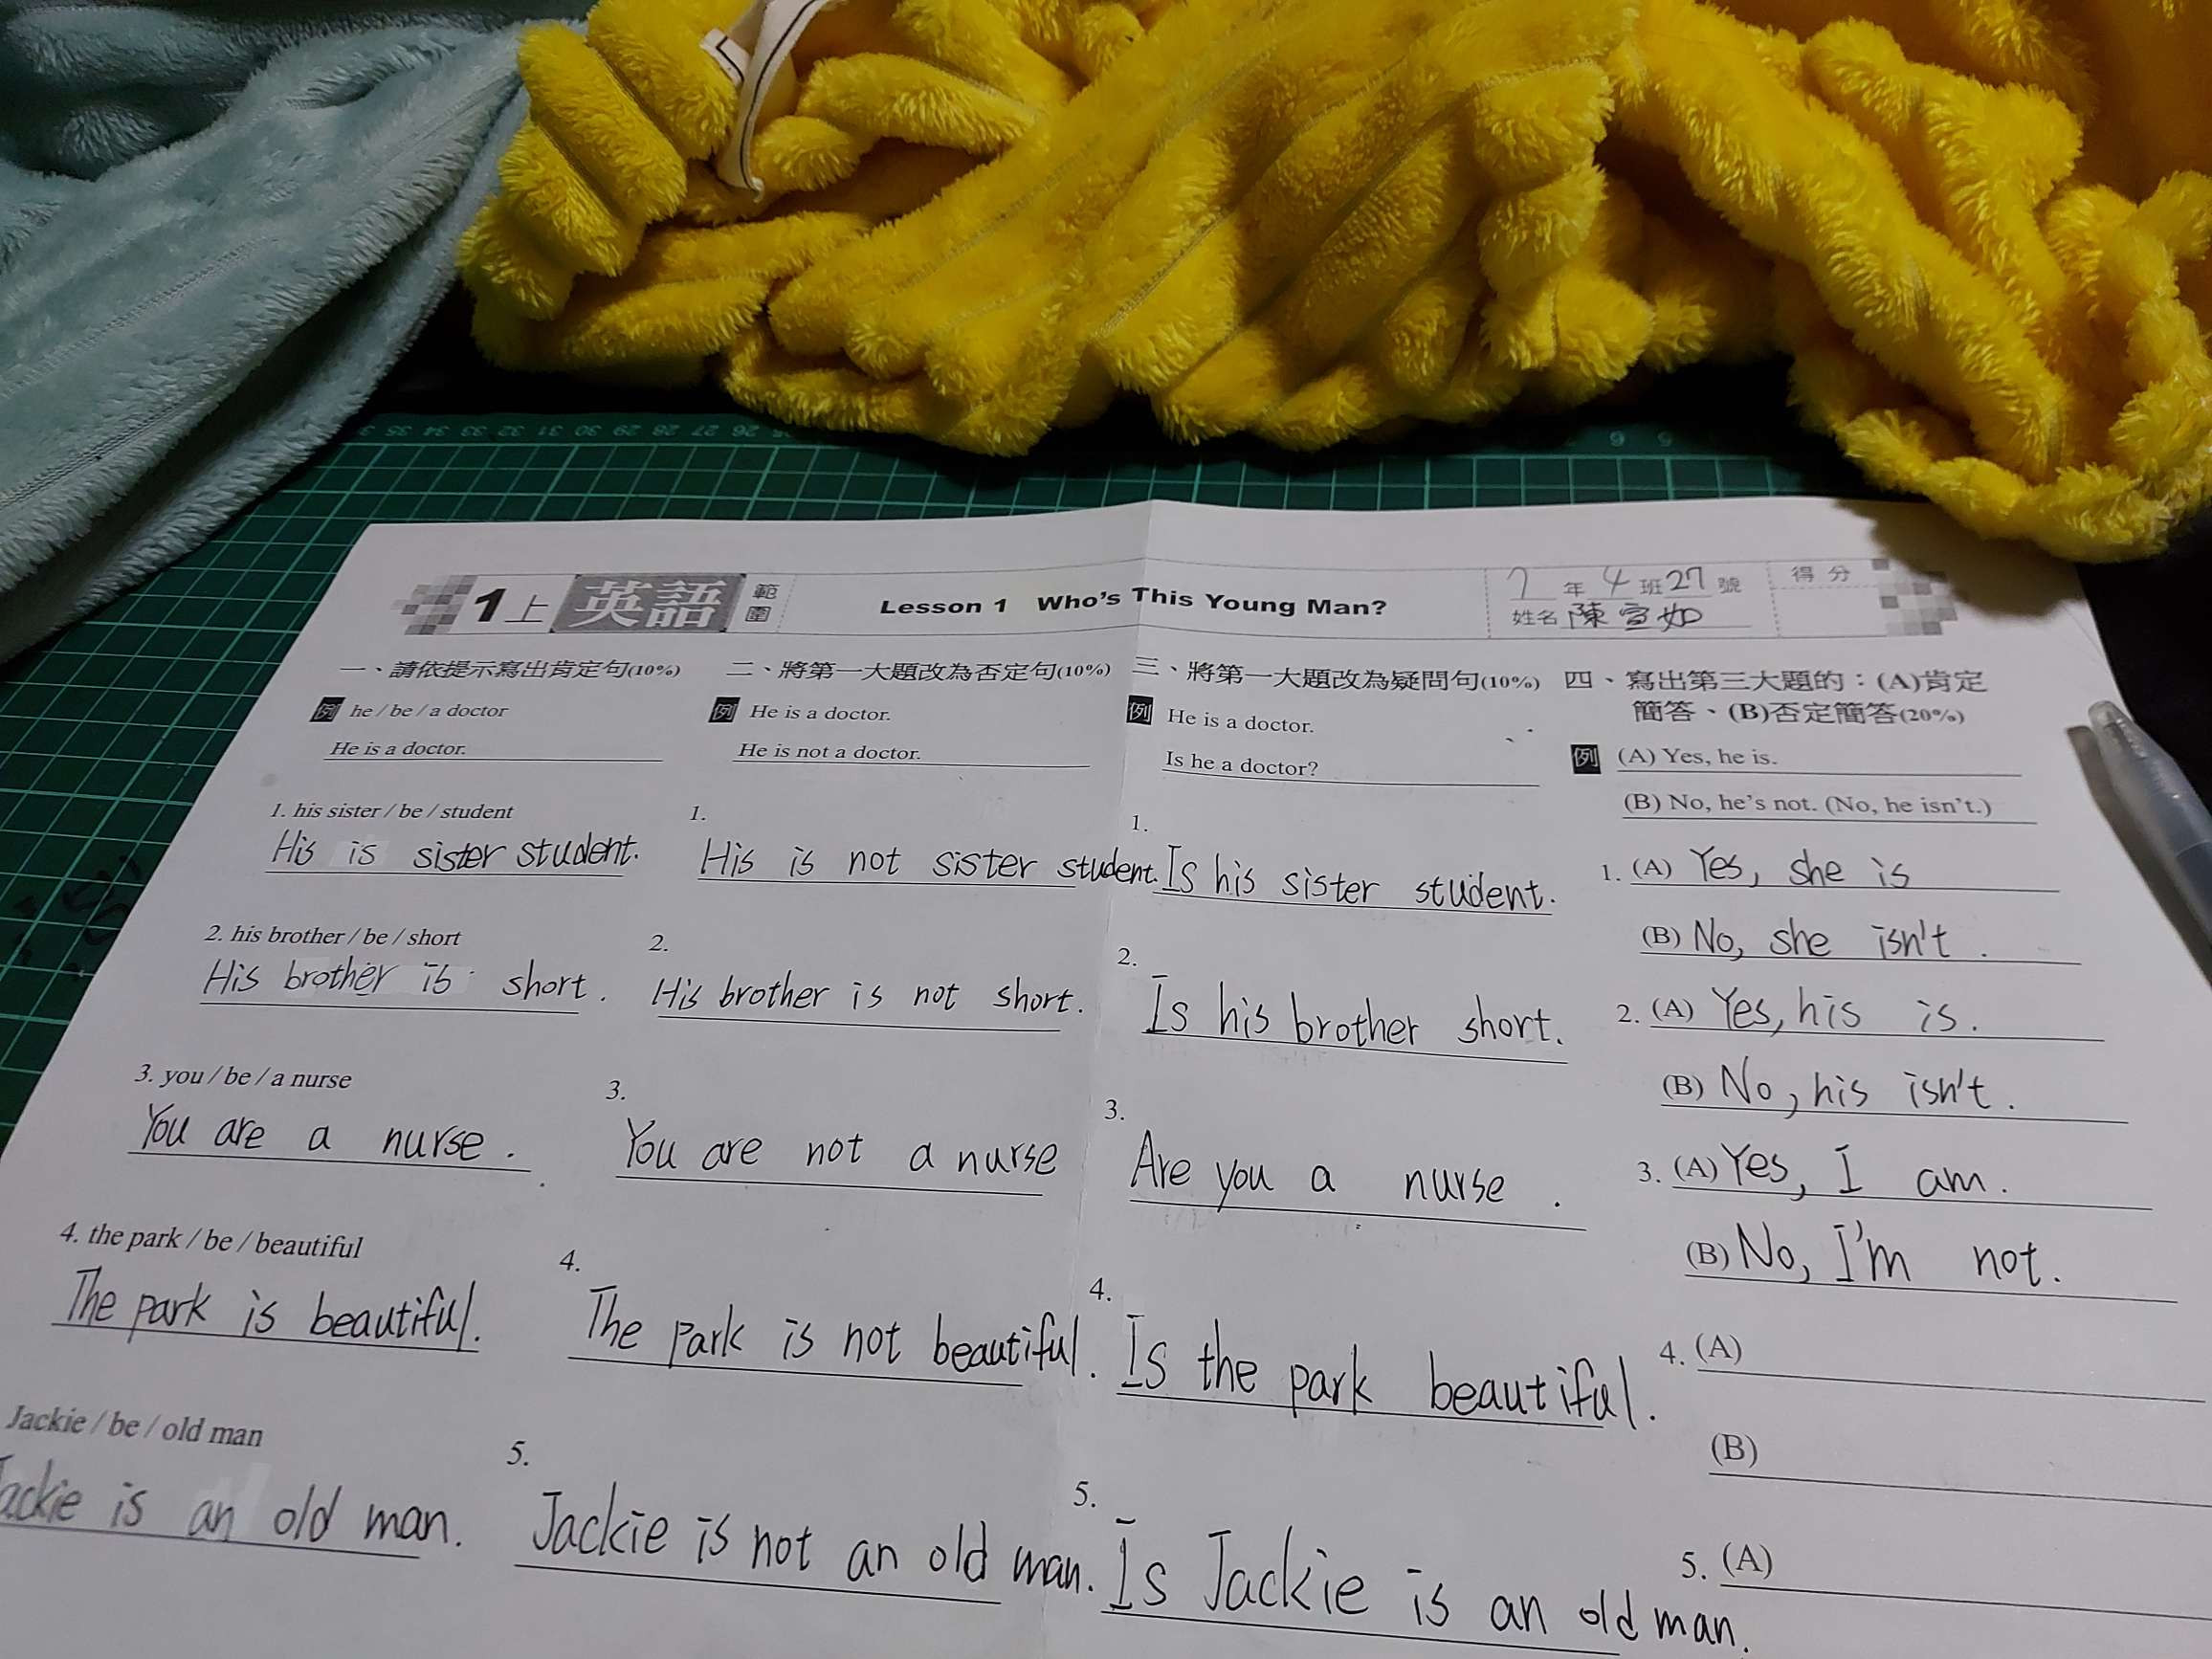 1上 英語 範圍 Lesson 1 Who's This Young Man? 7年4班27號 得分
姓名 陳宣如
一、請依提示寫出肯定句(10%)
例 he / be / a doctor
He is a doctor.
1. his sister / be / student
His is sister student.
2. his brother / be / short
His brother is short.
3. you / be / a nurse
You are a nurse.
4. the park / be / beautiful
The park is beautiful.
Jackie / be / old man
Jackie is an old man.
二、將第一大題改為否定句(10%)
例 He is a doctor.
He is not a doctor.
1.
His is not sister student.
2.
His brother is not short.
3.
You are not a nurse
4.
The park is not beautiful.
5.
Jackie is not an old man.
三、將第一大題改為疑問句(10%)
例 He is a doctor.
Is he a doctor?
1.
Is his sister student.
2.
Is his brother short.
3.
Are you a nurse.
4.
Is the park beautiful.
5.
Is Jackie is an old man.
四、寫出第三大題的：(A)肯定
簡答、(B)否定簡答(20%)
例 (A) Yes, he is.
(B) No, he's not. (No, he isn't.)
1. (A) Yes, she is
(B) No, she isn't.
2. (A) Yes, his is.
(B) No, his isn't.
3. (A) Yes, I am.
(B) No, I'm not.
4. (A)
(B)
5. (A)